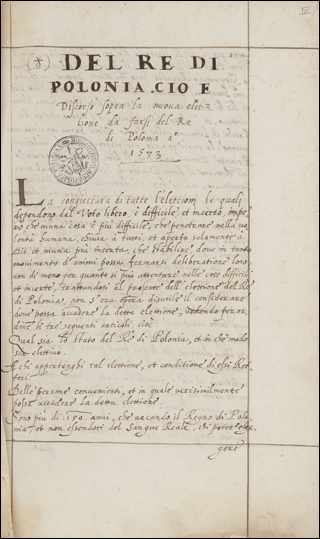 IV
(*) DEL RE DI
POLONIA. CIO E
Discorso sopra la nuova elet=
tione da farsi del Re
di Polonia aº
1573
La congiettura di tutte l'elettioni le quali
dependono dal Voto libero, è difficile et incerto, impe
ro che niuna cosa è più difficile, che penetrare nella vo
lontà humana, chiusa à tutti, et aperta solamente à
Dio et niuna più incerta, che stabilire dove in tanto
movimento d'animi possa fermarsi deliberatione loro
non di meno per quanto si può attentare nelle cose difficili
et incerte, trattandosi al presente dell'elettione del Re
di Polonia, non s'era opera disutile il considerare
dove possa accadere la detta elettione, vedendo per or
dine li tre seguenti articoli cioè
Qual sia lo stato del Rè di Polonia, et in che modo
sia elettivo.
A chi appertenghi tal elettione, et conditione di essi Elet
tori.
Delle persone convenienti, et in quale verisimilmente
possa accadere la detta elettione.
Sono più di 150. anni, che vacando il Regno di Polo
nia et non essendoci del Sangue Reale, chi poter eleg
gere